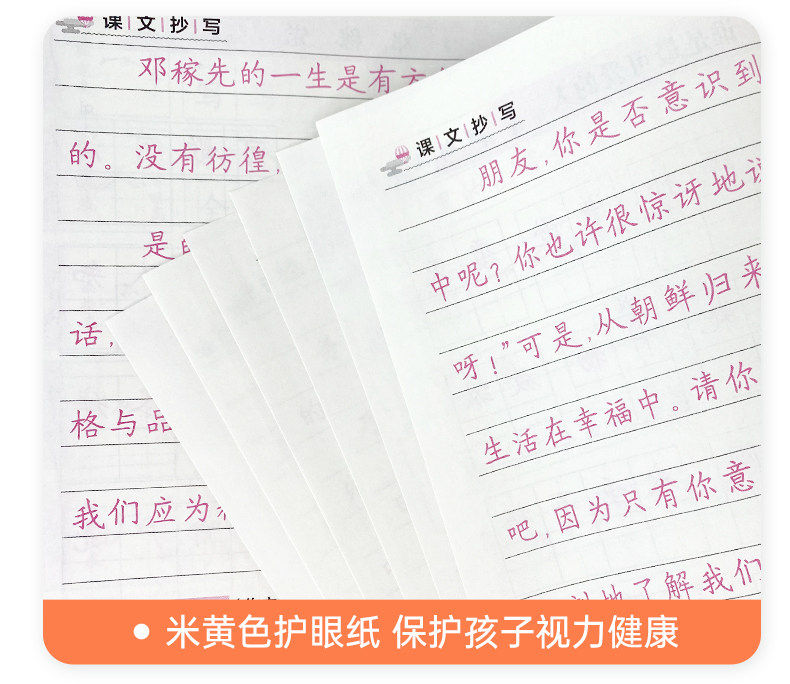 课文抄写
邓稼先的一生是有方
的。没有彷徨,
是
话,
格与品
我们应为
课文抄写
朋友,你是否意识到
中呢?你也许很惊讶地说
呀!”可是,从朝鲜归来
生活在幸福中。请你
吧,因为只有你意
地了解我们
米黄色护眼纸 保护孩子视力健康